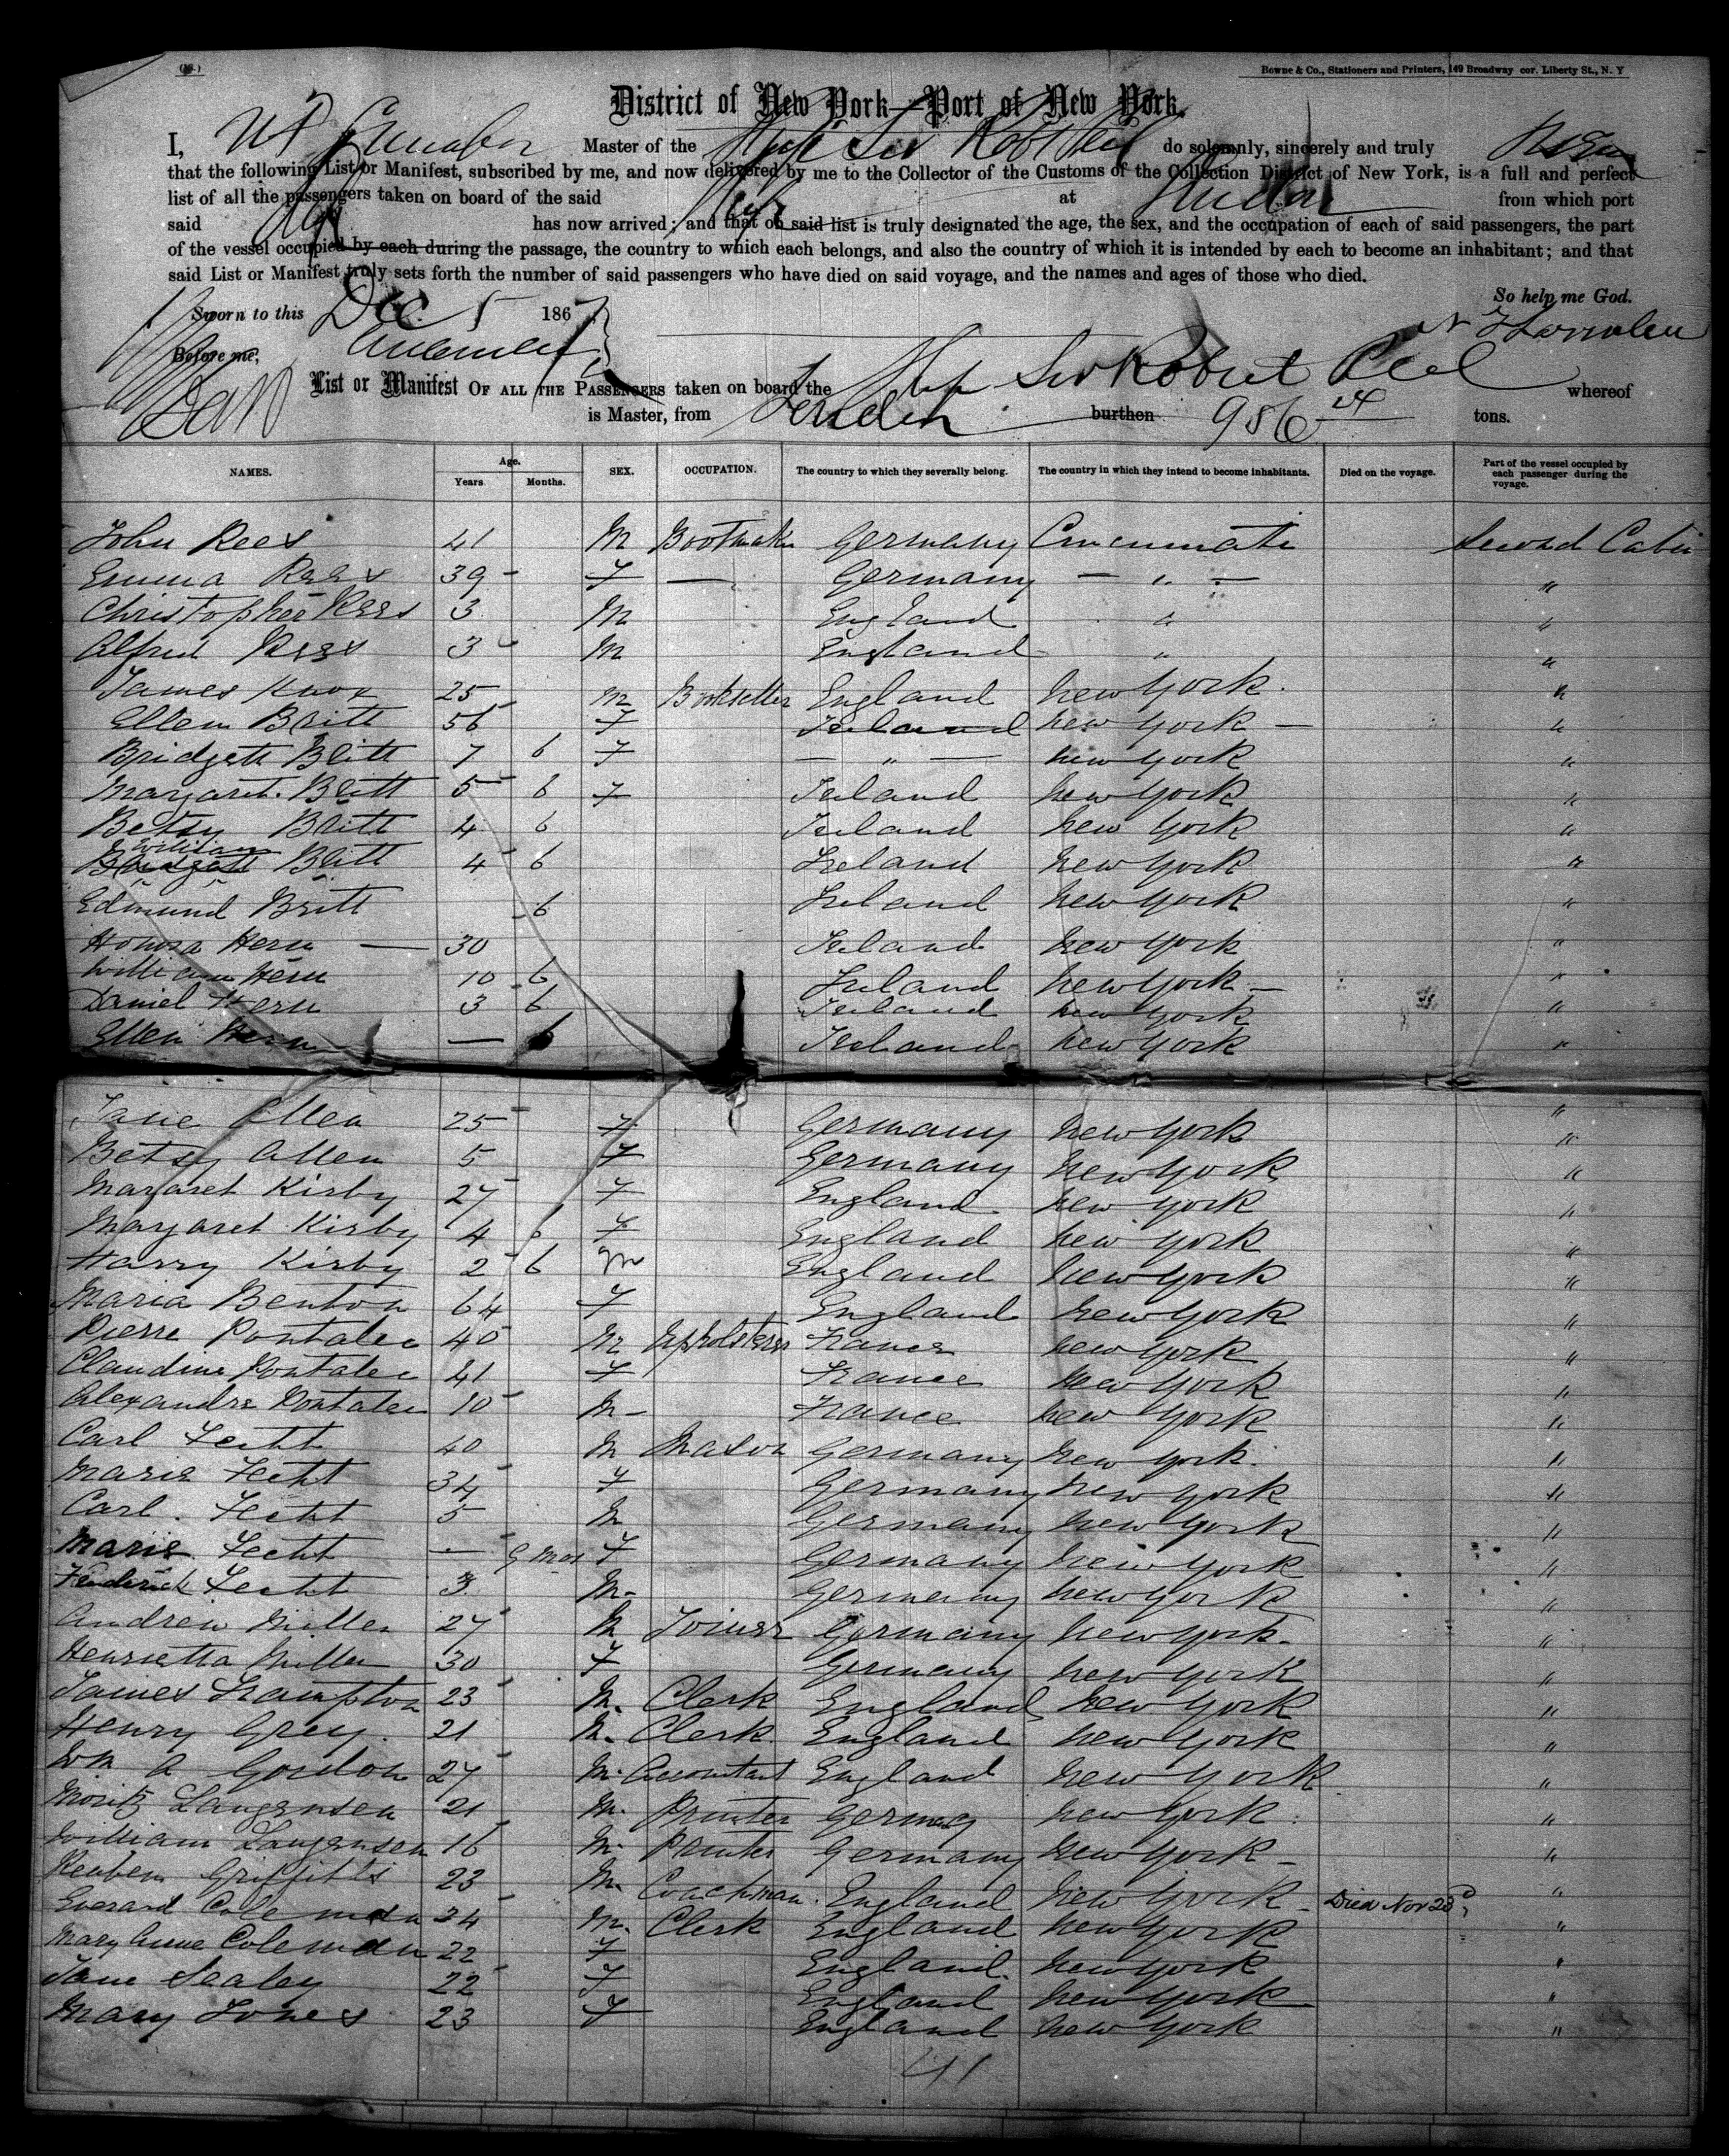 (18.)
Bowne & Co., Stationers and Printers, 149 Broadway cor. Liberty St., N. Y
District of New York—Port of New York.
I, Master of the Ship Sir Robt Peel do solemnly, sincerely and truly
that the following List or Manifest, subscribed by me, and now delivered by me to the Collector of the Customs of the Collection District of New York, is a full and perfect
list of all the passengers taken on board of the said Ship at London from which port
said Ship has now arrived; and that on said list is truly designated the age, the sex, and the occupation of each of said passengers, the part
of the vessel occupied by each during the passage, the country to which each belongs, and also the country of which it is intended by each to become an inhabitant; and that
said List or Manifest truly sets forth the number of said passengers who have died on said voyage, and the names and ages of those who died.
So help me God.
Sworn to this Dec 5 1867
Before me,
List or Manifest OF ALL THE PASSENGERS taken on board the Ship Sir Robert Peel whereof
is Master, from London burthen 986 24 tons.
NAMES. Age. Years. Months. SEX. OCCUPATION. The country to which they severally belong. The country in which they intend to become inhabitants. Died on the voyage. Part of the vessel occupied by each passenger during the voyage.
John Rees 41 M Bootmaker Germany Cincinnati Second Cabin
Emma Rees 39 F — Germany — " — "
Christopher Rees 3 M England " "
Alfred Rees 3 M England " "
James Knox 25 M Bookseller England New York. "
Ellen Britt 56 F Ireland New York — "
Bridgett Britt 7 6 F — " — New York "
Margaret Britt 5 6 F Ireland New York "
Betsy Britt 4 6 Ireland New York "
William Bridgett Britt 4 6 Ireland New York "
Edmund Britt 6 Ireland New York "
Honora Hern — 30 Ireland New York "
William Hern 10 6 Ireland New York — "
Daniel Hern 3 6 Ireland New York "
Ellen Hern — 6 Ireland New York "
Jane Allen 25 F Germany New York "
Betsy Allen 5 F Germany New York "
Margaret Kirby 27 F England New York "
Margaret Kirby 4 6 F England New York "
Harry Kirby 2 6 M England New York "
Maria Benton 64 F England New York "
Pierre Pontalec 40 M Upholsterer France New York "
Claudine Pontalec 41 F France New York "
Alexandre Pontalec 10 M France New York "
Carl Fecht 40 M Mason Germany New York "
Marie Fecht 34 F Germany New York "
Carl Fecht 5 M Germany New York "
Marie Fecht — 9 Mos F Germany New York "
Frederick Fecht 3 M Germany New York "
Andrew Miller 27 M Joiner Germany New York "
Henrietta Miller 30 F Germany New York "
James Frampton 23 M. Clerk England New York "
Henry Grey 21 M. Clerk England New York "
Wm A Gordon 27 M. Accountant England New York "
Moritz Laugensen 21 M. Printer Germany New York "
William Laugensen 16 M. Printer Germany New York — "
Reuben Griffiths 23 M. Coachman England New York — Died Nov 23d "
Everard Coleman 24 M. Clerk England New York "
Mary Anne Coleman 22 F England New York "
Jane Sealey 22 F England New York "
Mary Jones 23 F England New York "
41